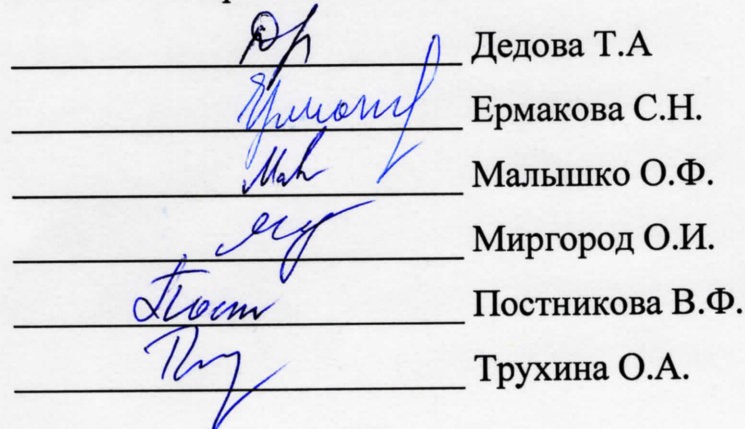 Дедова Т.А
Ермакова С.Н.
Малышко О.Ф.
Миргород О.И.
Постникова В.Ф.
Трухина О.А.